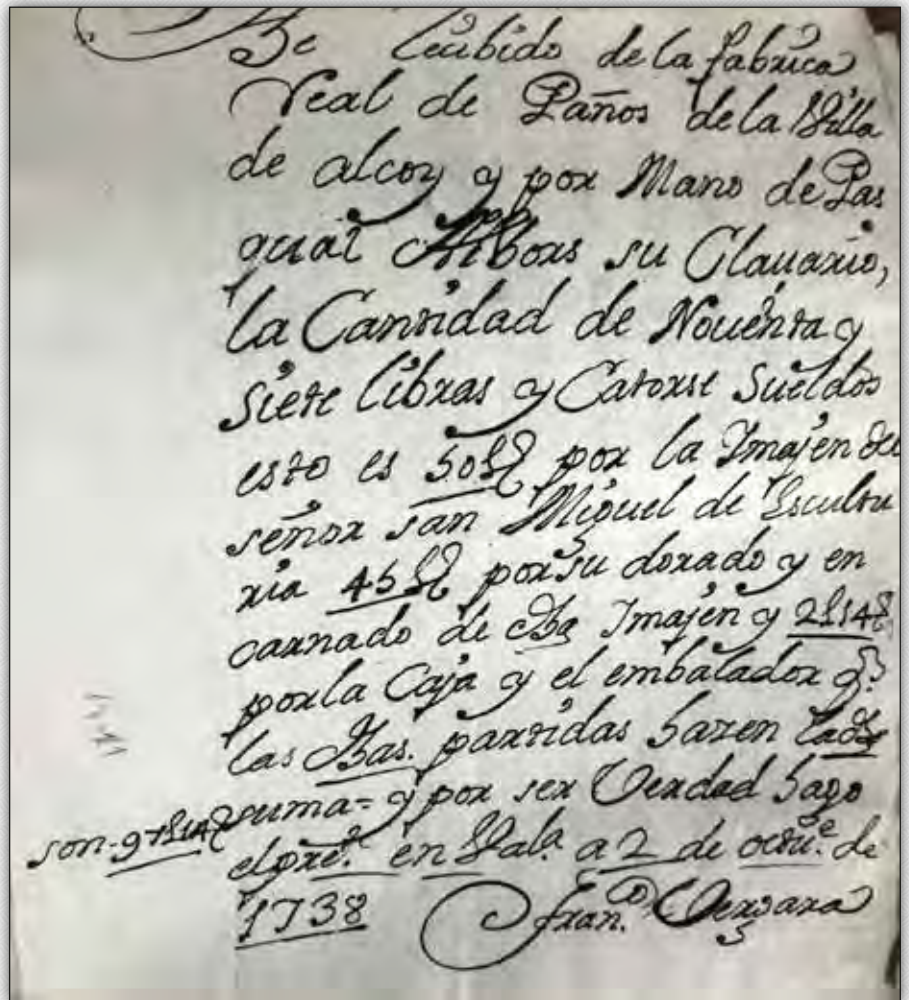 He Recibido de la fabrica
Real de Paños de la Villa
de alcoy y por Mano de Pas
qual Albors su Clauario,
la Cantidad de Nouenta y
siete libras y Catorse sueldos
esto es 50£ por la Imajen del
señor san Miguel de Escultu
ria 45£ por su dorado y en
carnado de dha Imajen y 2£14s
por la Caja y el embalador q.e
las dhas. partidas hazen la dha
suma= y por ser Verdad hago
son-97£14s
el pre.te en Val.a a 2 de octu.e de
1738 Fran.co Vergara